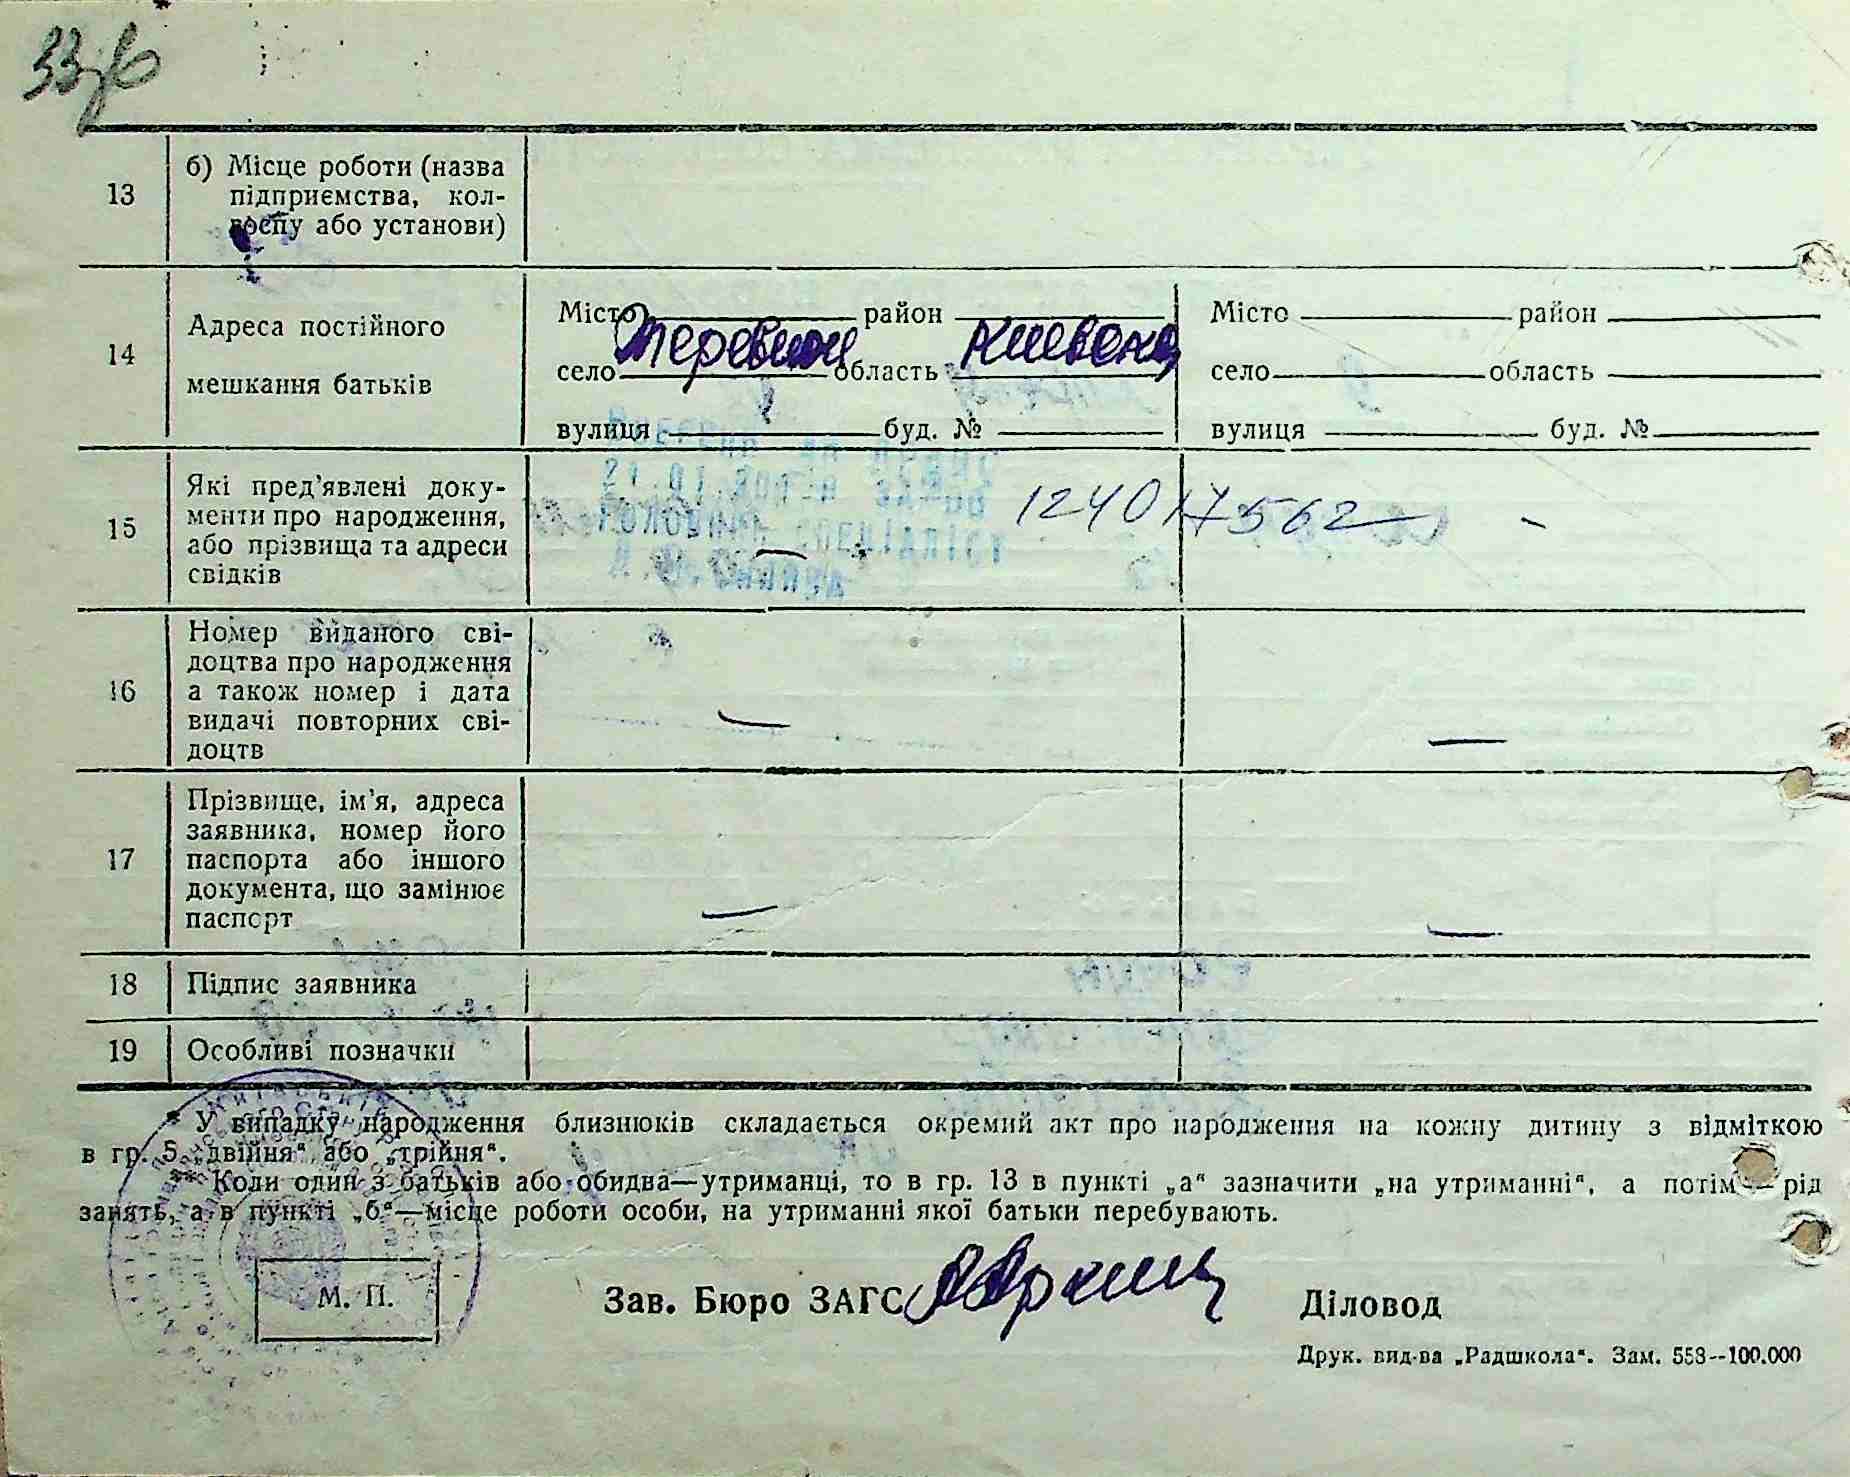 13
б) Місце роботи (назва
підприємства, кол-
госпу або установи)
14
Адреса постійного
мешкання батьків
Місто район
село область Киевская
вулиця буд. №
Місто район
село область
вулиця буд. №
15
Які пред'явлені доку-
менти про народження,
або прізвища та адреси
свідків
1240 17562 -
16
Номер виданого сві-
доцтва про народження
а також номер і дата
видачі повторних сві-
доцтв
17
Прізвище, ім'я, адреса
заявника, номер його
паспорта або іншого
документа, що замінює
паспорт
18
Підпис заявника
19
Особливі позначки
* У випадку народження близнюків складається окремий акт про народження на кожну дитину з відміткою
в гр. 5 „двійня“ або „трійня“.
Коли один з батьків або обидва—утриманці, то в гр. 13 в пункті „а“ зазначити „на утриманні“, а потім рід
занять, а в пункті „б“—місце роботи особи, на утриманні якої батьки перебувають.
М. П.
Зав. Бюро ЗАГС
Діловод
Друк. вид-ва „Радшкола“. Зам. 558--100.000